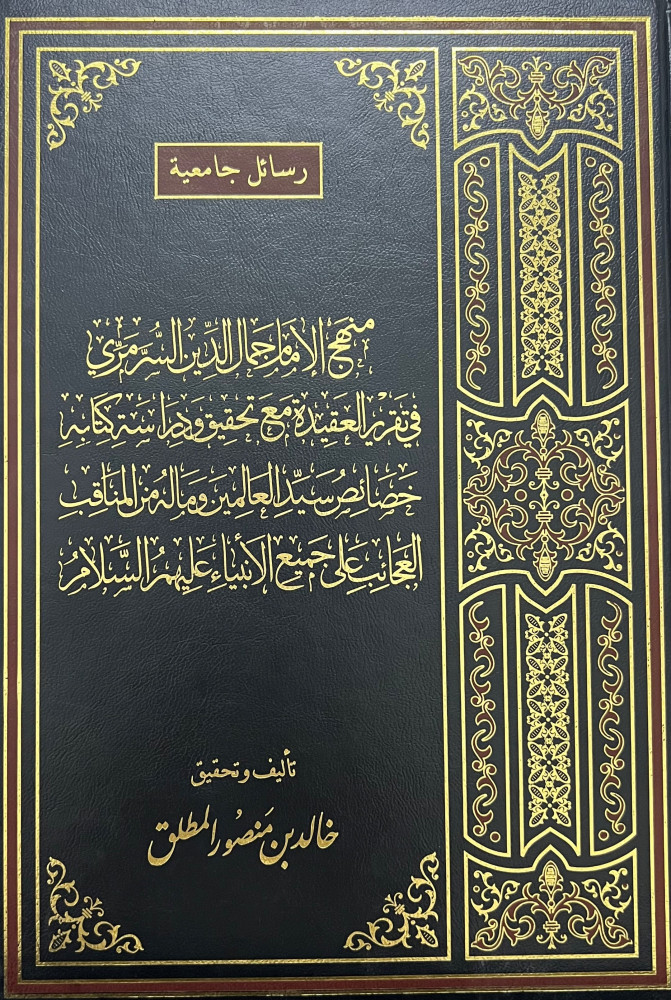 رسائل جامعية
منهج الإمام جمال الدين السُّرَّمَرِّي
في تقرير العقيدة مع تحقيق ودراسة كتابه
خصائص سيد العالمين وما له من المناقب
العجائب على جميع الأنبياء عليهم السلام
تأليف وتحقيق
خالد بن منصور المطلق